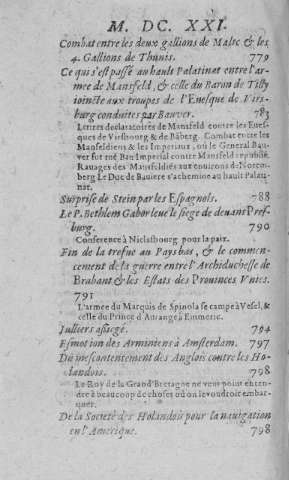 M. DC. XXI.
Combat entre les deux gallions de Malte & les
4. Gallions de Thunis. 779
Ce qui s'est passé au hault Palatinat entre l'ar-
mee de Mansfeld, & celle du Baron de Tilly
ioincte aux troupes de l'Euesque de Virs-
burg conduittes par Bauver. 783
Lettres declaratoires de Mansfeld contre les Eues-
ques de Virsbourg & de Baberg. Combat entre les
Mansfeldiens & les Imperiaux, où le General Bau-
ver fut tué Ban Imperial contre Mansfeld republié.
Rauages des Mansfeldiés aux enuirons de Norem-
berg Le Duc de Bauiere s'achemine au hault Palati-
nat.
Surprise de Stein par les Espagnols. 788
Le P. Bethlem Gabor leue le siege de deuant Pres-
burg. 790
Conference à Niclasbourg pour la paix.
Fin de la trefue au Pays bas, & le commen-
cement de la guerre entre l'Archiduchesse de
Brabant & les Estats des Prouinces Vnies.
791
L'armee du Marquis de Spinola se campe à Vesel, &
celle du Prince d'Aurange à Emmeric.
Iulliers assiegé. 794
Esmotion des Arminiens à Amsterdam. 797
Du mescontentement des Anglois contre les Ho-
landois. 798
Le Roy de la Grand'Bretagne ne veut point enten-
dre à beaucoup de choses où on le voudroit embar-
quer.
De la Societé des Holandois pour la nauigation
en l'Amerique. 798